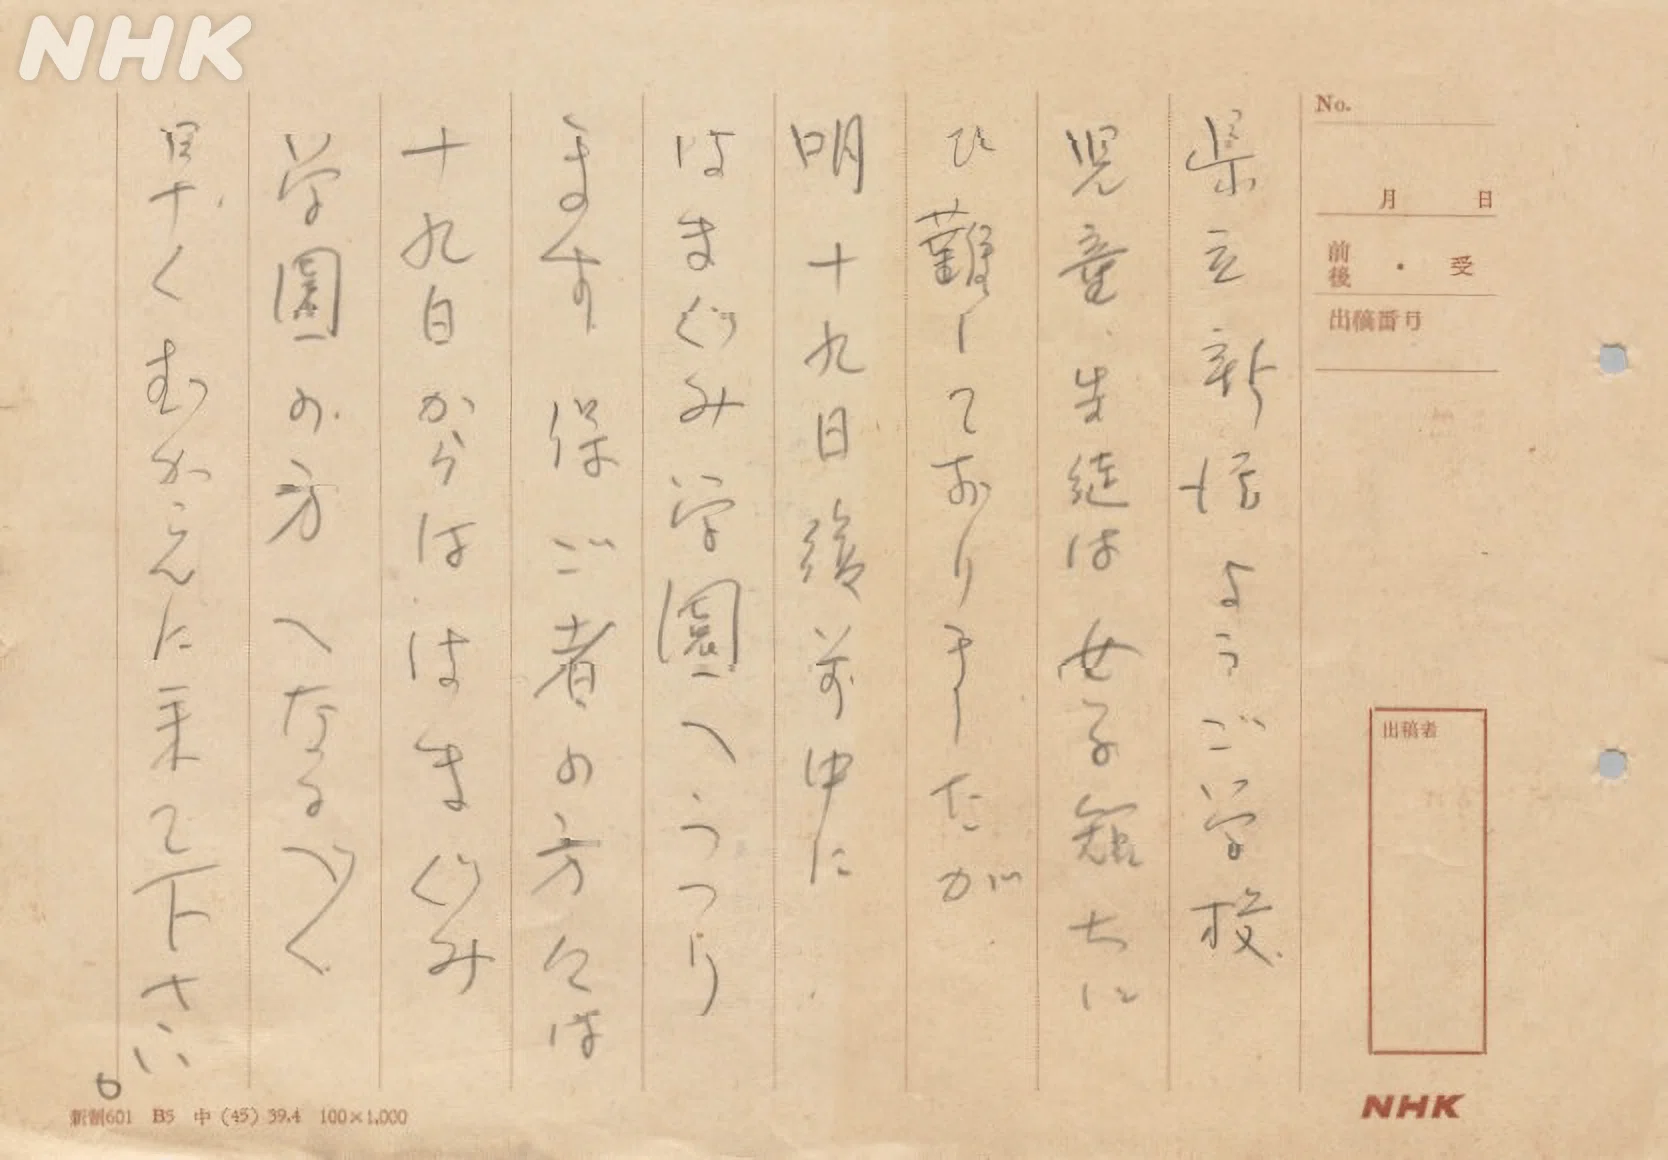 NHK
No.
月 日
前後 ・ 受
出稿番号
出稿者
NHK
県立新潟ようご学校
児童、生徒は女子短大に
ひ難しておりましたが
明十九日後前中に
はまぐみ学園へうつり
ます 保ご者の方々は
十九日からははまぐみ
学園の方へなるべく
早くむかえに来て下さい。
新制601 B5 中 (45) 39.4 100×1,000